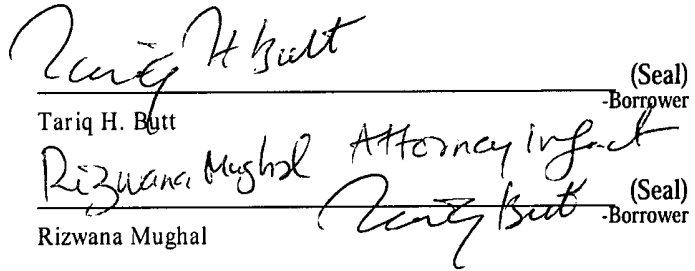 Tariq H Butt
(Seal)
-Borrower
Tariq H. Butt
Rizwana Mughal Attorney infact
Tariq Butt
(Seal)
-Borrower
Rizwana Mughal